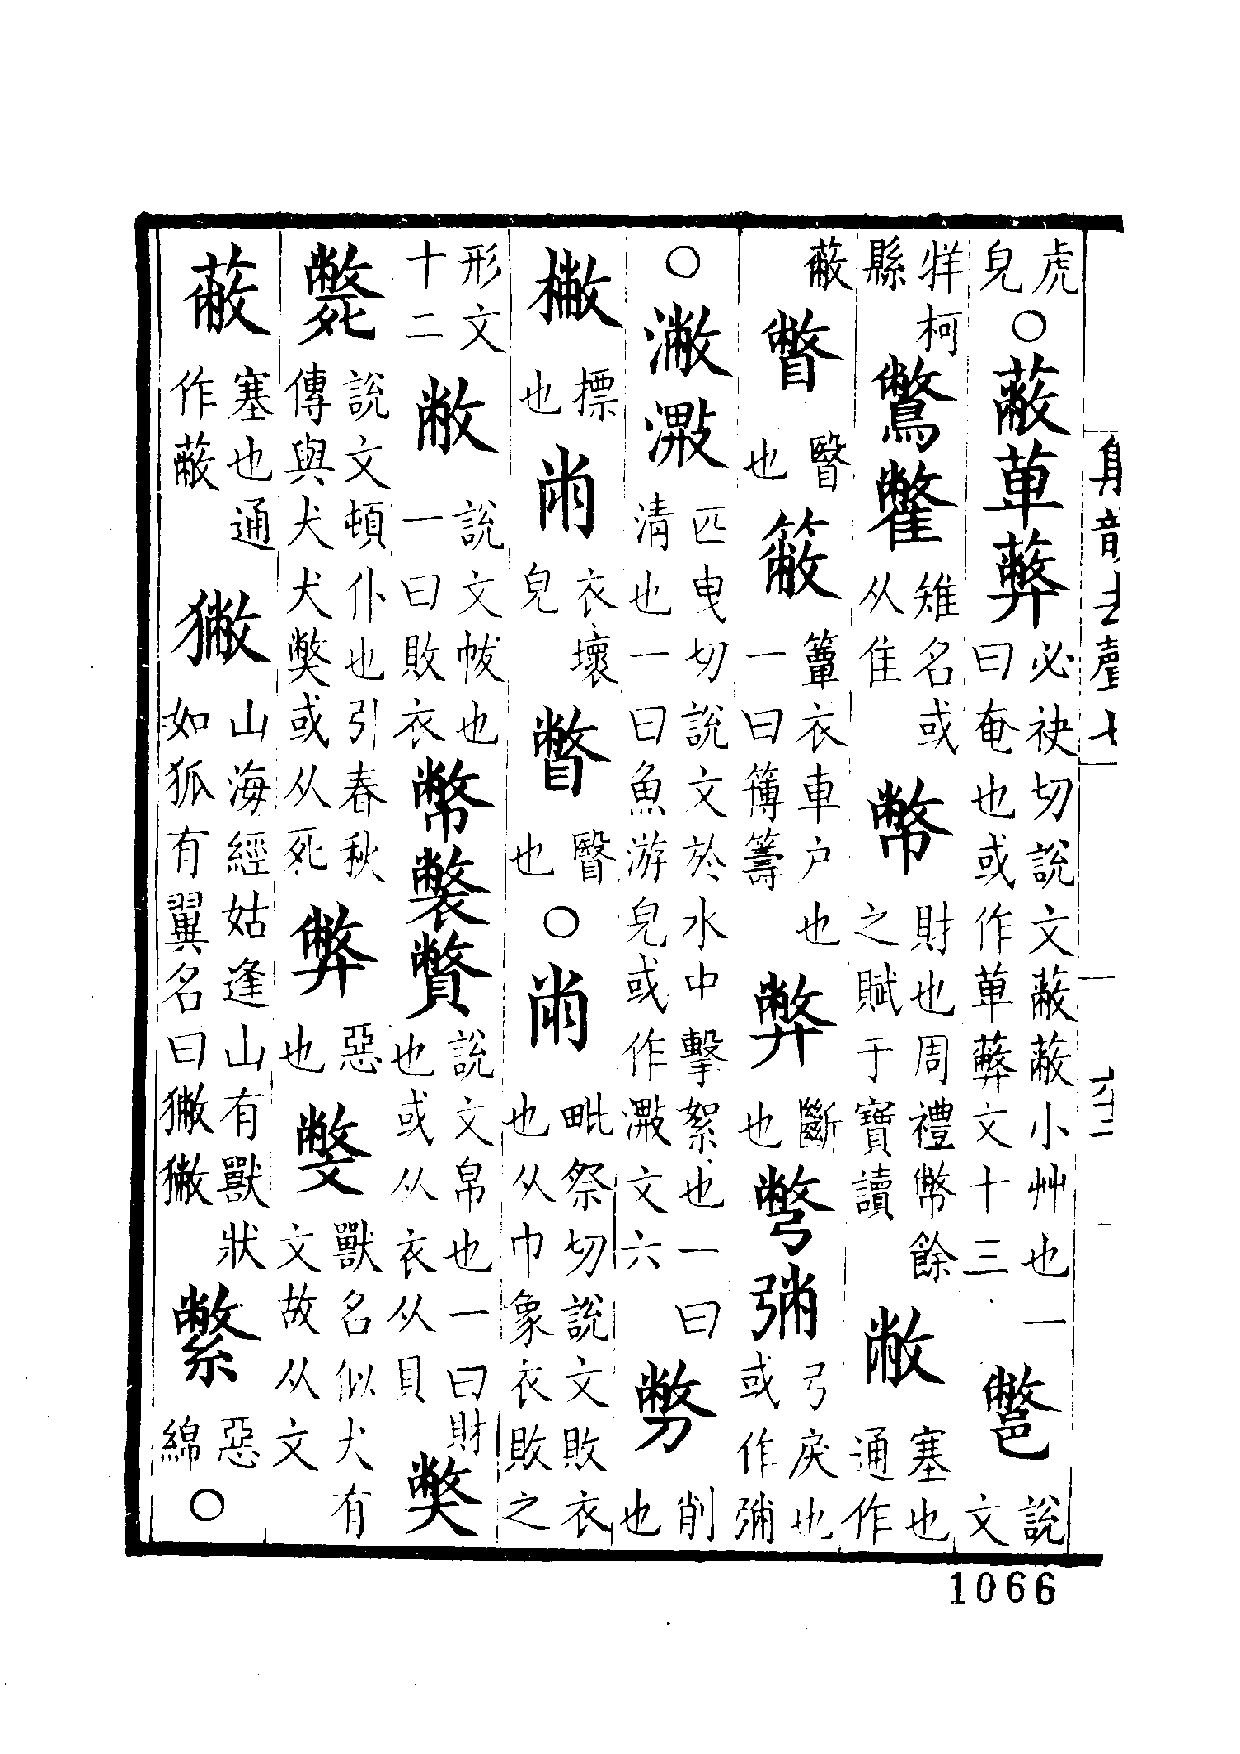 集韻去聲七
虎皃○蔽萆䔑必袂切說文蔽蔽小艸也一曰奄也或作萆䔑文十三鄨說文
牂柯縣鷩雉名或从隹幣財也周禮幣餘之賦于寶讀敝塞也通作
蔽瞥瞖也簟衣車户也一曰簿籌弊斷也彆弻弓戾也或作弻
○潎匹曳切說文於水中擊絮也一曰魚游皃或作文六削也
標也㡀衣壞皃瞥瞖也○㡀毗祭切說文敗衣也从巾象衣敗之
形文十二敝說文帗也一曰敗衣幣說文帛也一曰財也或从衣从貝獘
斃說文頓仆也引春秋傳與犬犬獘或从死弊惡也獸名似犬有文故从文
蔽塞也通作蔽獙山海經姑逢山有獸狀如狐有翼名曰獙獙惡綿○
1066